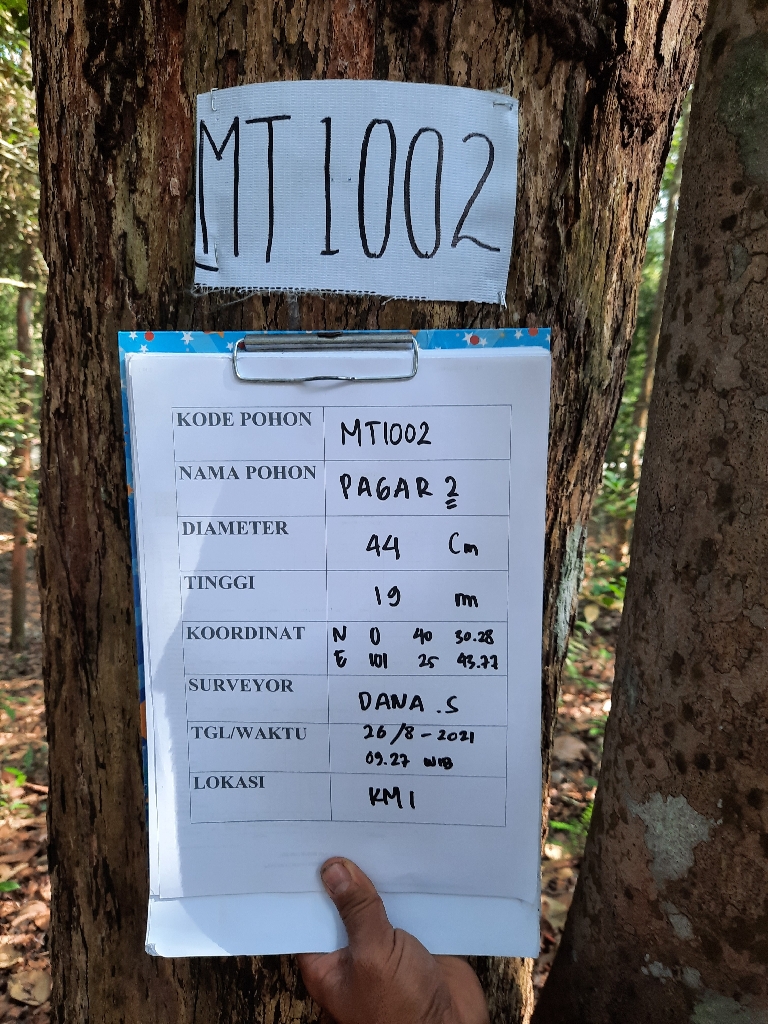 MT1002
KODE POHON MT1002
NAMA POHON PAGAR 2
DIAMETER 44 Cm
TINGGI 19 m
KOORDINAT N 0 40 30.28
E 101 25 43.77
SURVEYOR DANA .S
TGL/WAKTU 26/8-2021
09.27 WIB
LOKASI KM1